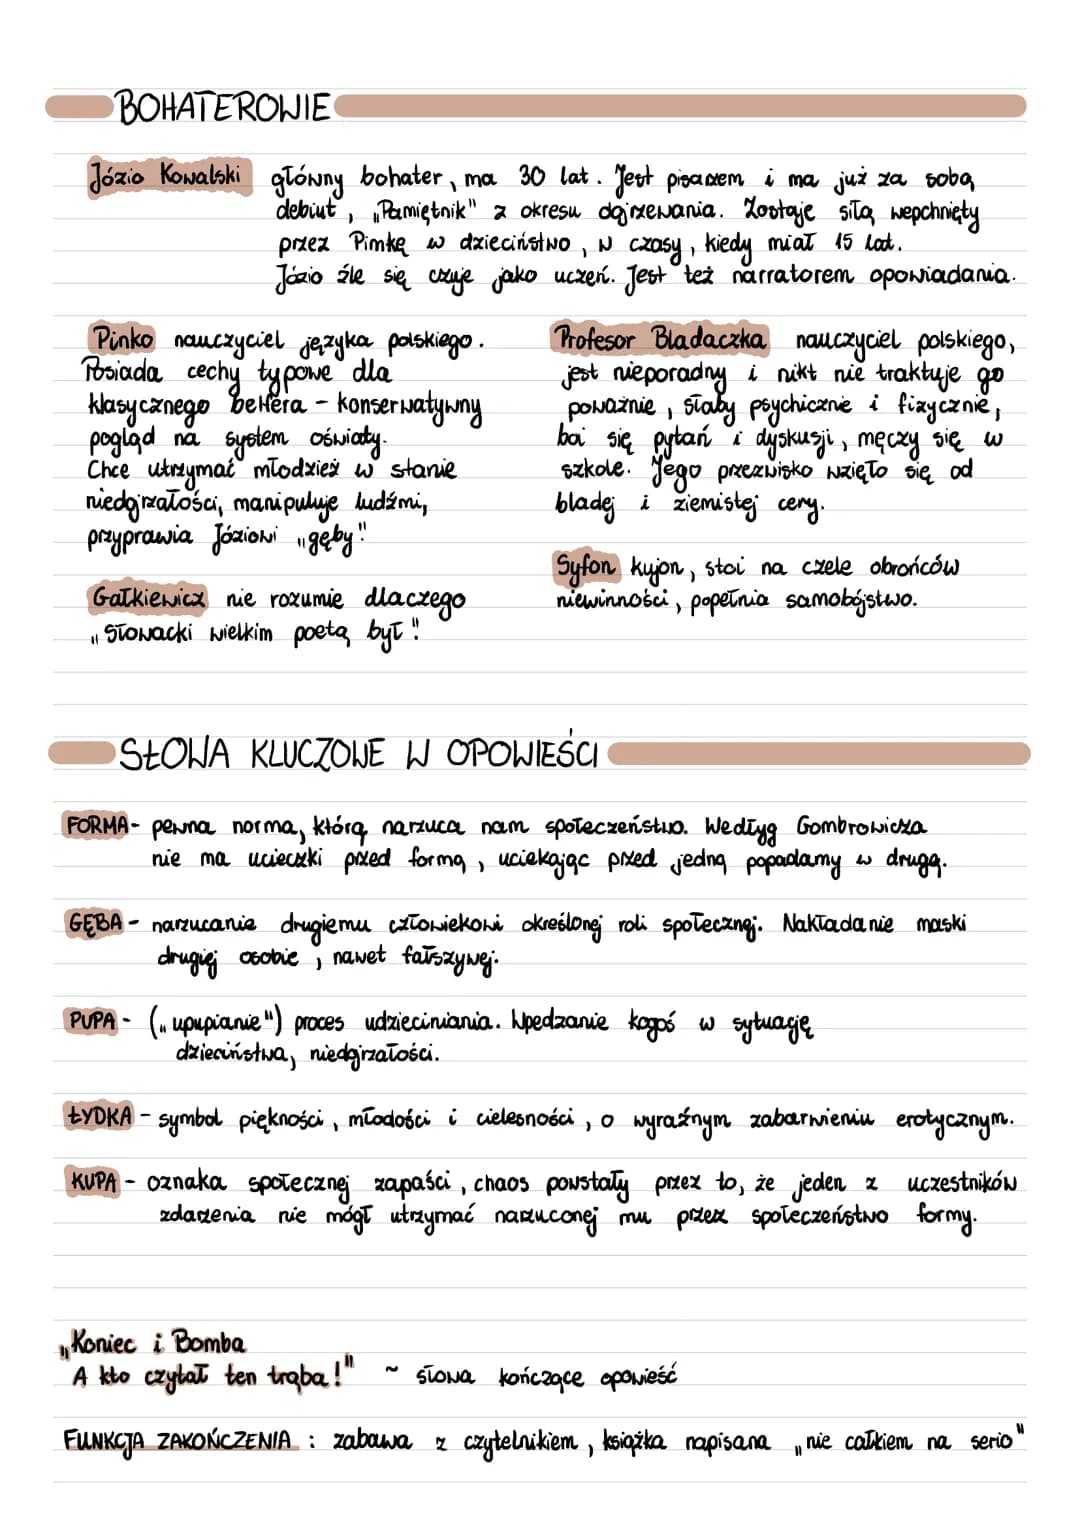 BOHATEROWIE
Józio Kowalski główny bohater, ma 30 lat. Jest pisarzem i ma już za sobą
debiut, „Pamiętnik" z okresu dojrzewania. Zostaje siłą wepchnięty
przez Pimkę w dzieciństwo, w czasy, kiedy miał 15 lat.
Józio źle się czuje jako uczeń. Jest też narratorem opowiadania.
Pinko nauczyciel języka polskiego.
Posiada cechy typowe dla
klasycznego belfera - konserwatywny
pogląd na system oświaty.
Chce utrzymać młodzież w stanie
niedojrzałości, manipuluje ludźmi,
przyprawia Józiowi „gęby"
Gałkiewicz nie rozumie dlaczego
„Słowacki wielkim poetą był"
Profesor Bladaczka nauczyciel polskiego,
jest nieporadny i nikt nie traktuje go
poważnie, słaby psychicznie i fizycznie,
boi się pytań i dyskusji, męczy się w
szkole. Jego przezwisko wzięło się od
bladej i ziemistej cery.
Syfon kujon, stoi na czele obrońców
niewinności, popełnia samobójstwo.
SŁOWA KLUCZOWE W OPOWIEŚCI
FORMA - pewna norma, którą narzuca nam społeczeństwo. Wedłyg Gombrowicza
nie ma ucieczki przed formą, uciekając przed jedną popadamy w drugą.
GĘBA - narzucanie drugiemu człowiekowi określonej roli społecznej. Nakładanie maski
drugiej osobie, nawet fałszywej.
PUPA - („upupianie") proces udziecinniania. Wpedzanie kogoś w sytuację
dzieciństwa, niedojrzałości.
ŁYDKA - symbol piękności, młodości i cielesności, o wyraźnym zabarwieniu erotycznym.
KUPA - oznaka społecznej zapaści, chaos powstały przez to, że jeden z uczestników
zdarzenia nie mógł utrzymać narzuconej mu przez społeczeństwo formy.
„Koniec i Bomba
A kto czytał ten trąba!" ~ słowa kończące opowieść
FUNKCJA ZAKOŃCZENIA : zabawa z czytelnikiem, książka napisana „nie całkiem na serio"